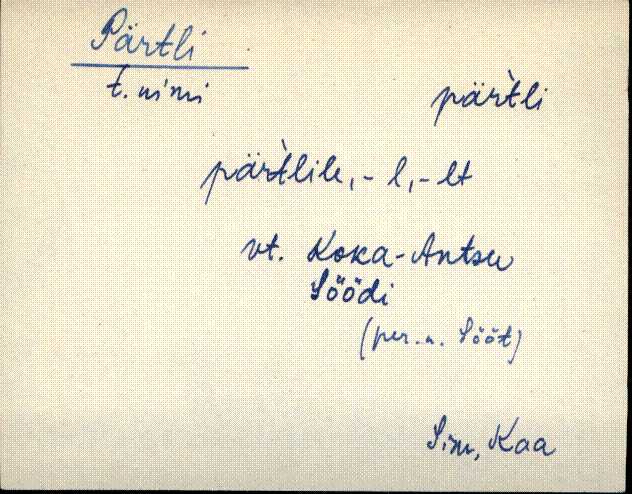 Pärtli
t. nimi
pär̀tli
pär̀tlile, -l, -lt
vt. Koka-Antsu
Söödi
(per. n. Sööt)
S.m, Kaa